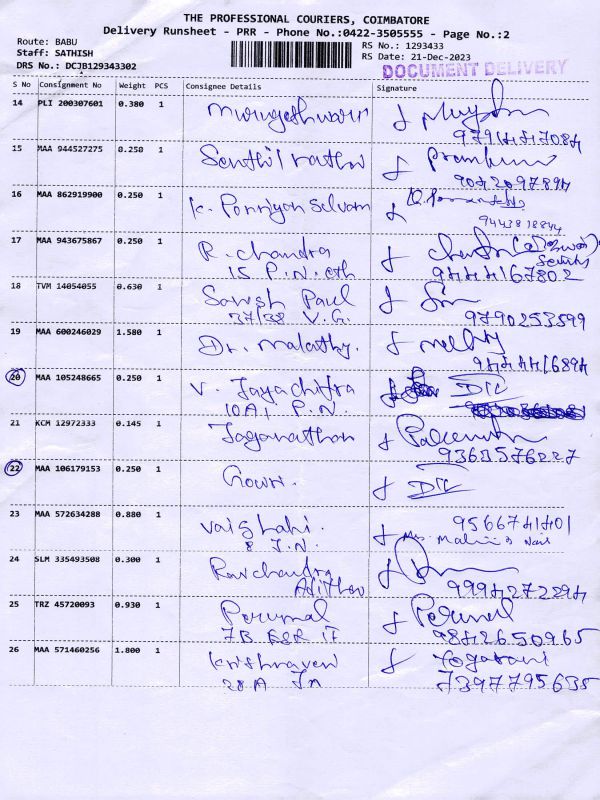 THE PROFESSIONAL COURIERS, COIMBATORE
Delivery Runsheet - PRR - Phone No.:0422-3505555 - Page No.:2
Route: BABU
Staff: SATHISH
DRS No.: DCJB129343302
RS No.: 1293433
RS Date: 21-Dec-2023
DOCUMENT DELIVERY
S No Consignment No Weight PCS Consignee Details Signature
14 PLI 200307601 0.380 1 Murugeshwari
15 MAA 944527275 0.250 1 Senthil
16 MAA 862919900 0.250 1 K. Ponniyan Selvam
9443818844
17 MAA 943675867 0.250 1 R. Chandra
15 P.N.
9444167802
18 TVM 14054055 0.630 1 Paul
37/38 V.G.
9790253599
19 MAA 600246029 1.580 1 Dr. Malathy.
20 MAA 105248665 0.250 1 V. Jayachitra
10A1 P.N.
21 KCM 12972333 0.145 1 Jaganathan
9360576227
22 MAA 106179153 0.250 1 Gowri.
23 MAA 572634288 0.880 1 Vaishali.
8 J.N.
9566741401
24 SLM 335493508 0.300 1 Ravchandra
9994272294
25 TRZ 45720093 0.930 1 Perumal
7B
9842650965
26 MAA 571460256 1.800 1 Krishnaveni Yogarani
28A Jn 7397795635